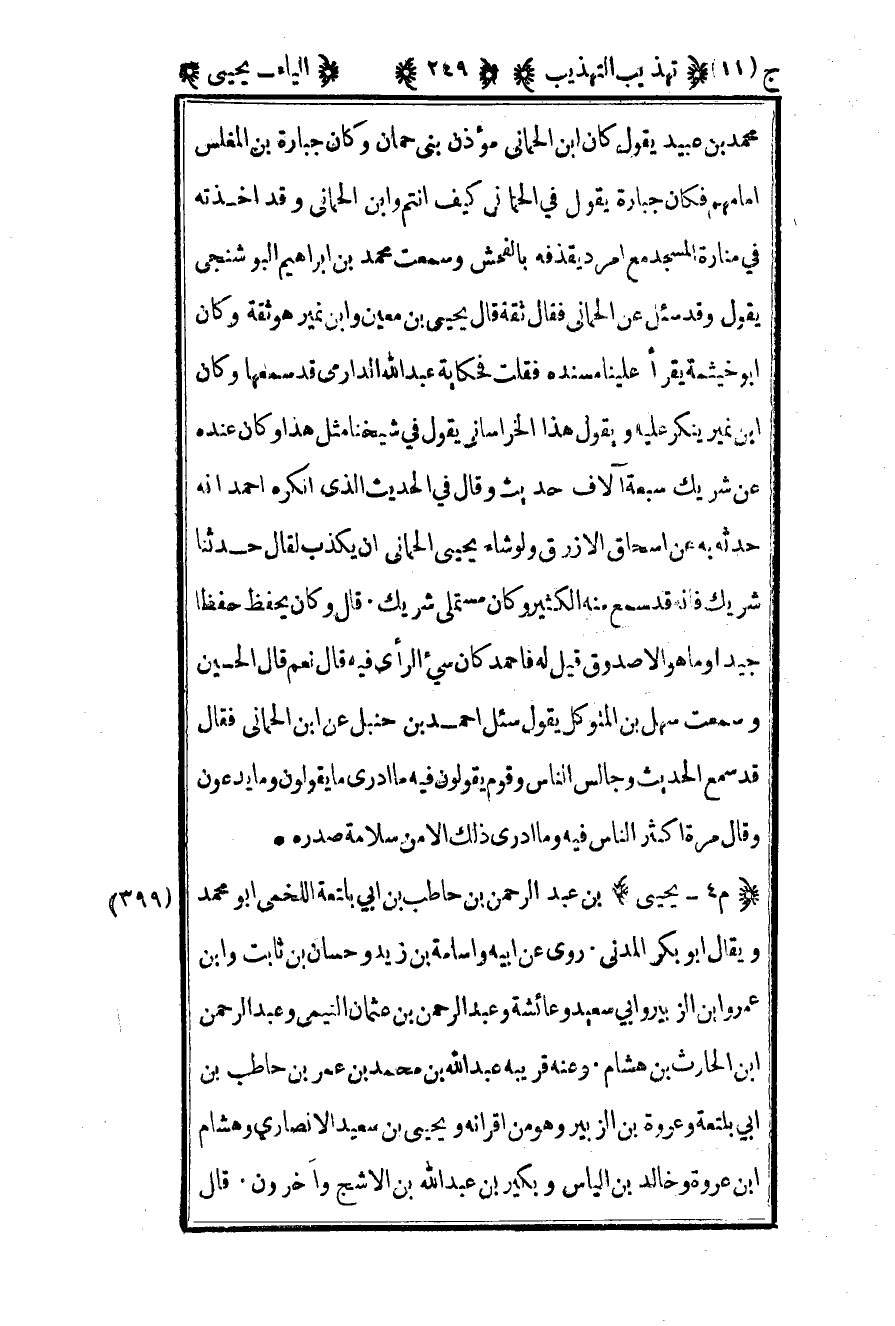 ج (١١) ﴿ تهذيب التهذيب ﴾ ﴿ ٢٤٩ ﴾ ﴿ الياء ـ يحيى ﴾
محمد بن عبيد يقول كان ابن الحمانى مؤذن بنى حمان وكان جبارة بن المغلس
امامهم فكان جبارة يقول في الحمانى كيف انتم وابن الحمانى وقد اخذته
في منارة المسجد مع امرد يقذفه بالفحش وسمعت محمد بن ابراهيم البوشنجى
يقول وقد سئل عن الحمانى فقال ثقة قال يحيى بن معين وابن نمير هو ثقة وكان
ابو خيثمة يقرأ علينا مسنده فقلت فحكاية عبدالله الدارمى قد سمعها وكان
ابن نمير ينكر عليه ويقول هذا الخراسانى يقول في شيخنا مثل هذا وكان عنده
عن شريك سبعة آلاف حديث وقال في الحديث الذى انكره احمد انه
حدثه به عن اسحاق الازرق ولو شاء يحيى الحمانى ان يكذب لقال حدثنا
شريك فانه قد سمع منه الكثير وكان مستملى شريك ٠ قال وكان يحفظ حفظا
جيدا وما هو الا صدوق قيل له فاحمد كان سيئ الرأى فيه قال نعم قال الحسين
وسمعت سهل بن المتوكل يقول سئل احمد بن حنبل عن ابن الحمانى فقال
قد سمع الحديث وجالس الناس وقوم يقولون فيه ما ادرى ما يقولون وما يدعون
وقال مرة اكثر الناس فيه وما ادرى ذلك الا من سلامة صدره •
﴿ م٤ ـ يحيى ﴾ بن عبد الرحمن بن حاطب بن ابي بلتعة اللخمى ابو محمد (٣٩٩)
ويقال ابو بكر المدنى ٠ روى عن ابيه واسامة بن زيد وحسان بن ثابت وابن
عمر وابن الزبير وابي سعيد وعائشة وعبد الرحمن بن عثمان التيمى وعبد الرحمن
ابن الحارث بن هشام ٠ وعنه قريبه عبدالله بن محمد بن عمر بن حاطب بن
ابي بلتعة وعروة بن الزبير وهو من اقرانه ويحيى بن سعيد الانصاري وهشام
ابن عروة وخالد بن الياس وبكير بن عبدالله بن الاشج وآخرون ٠ قال